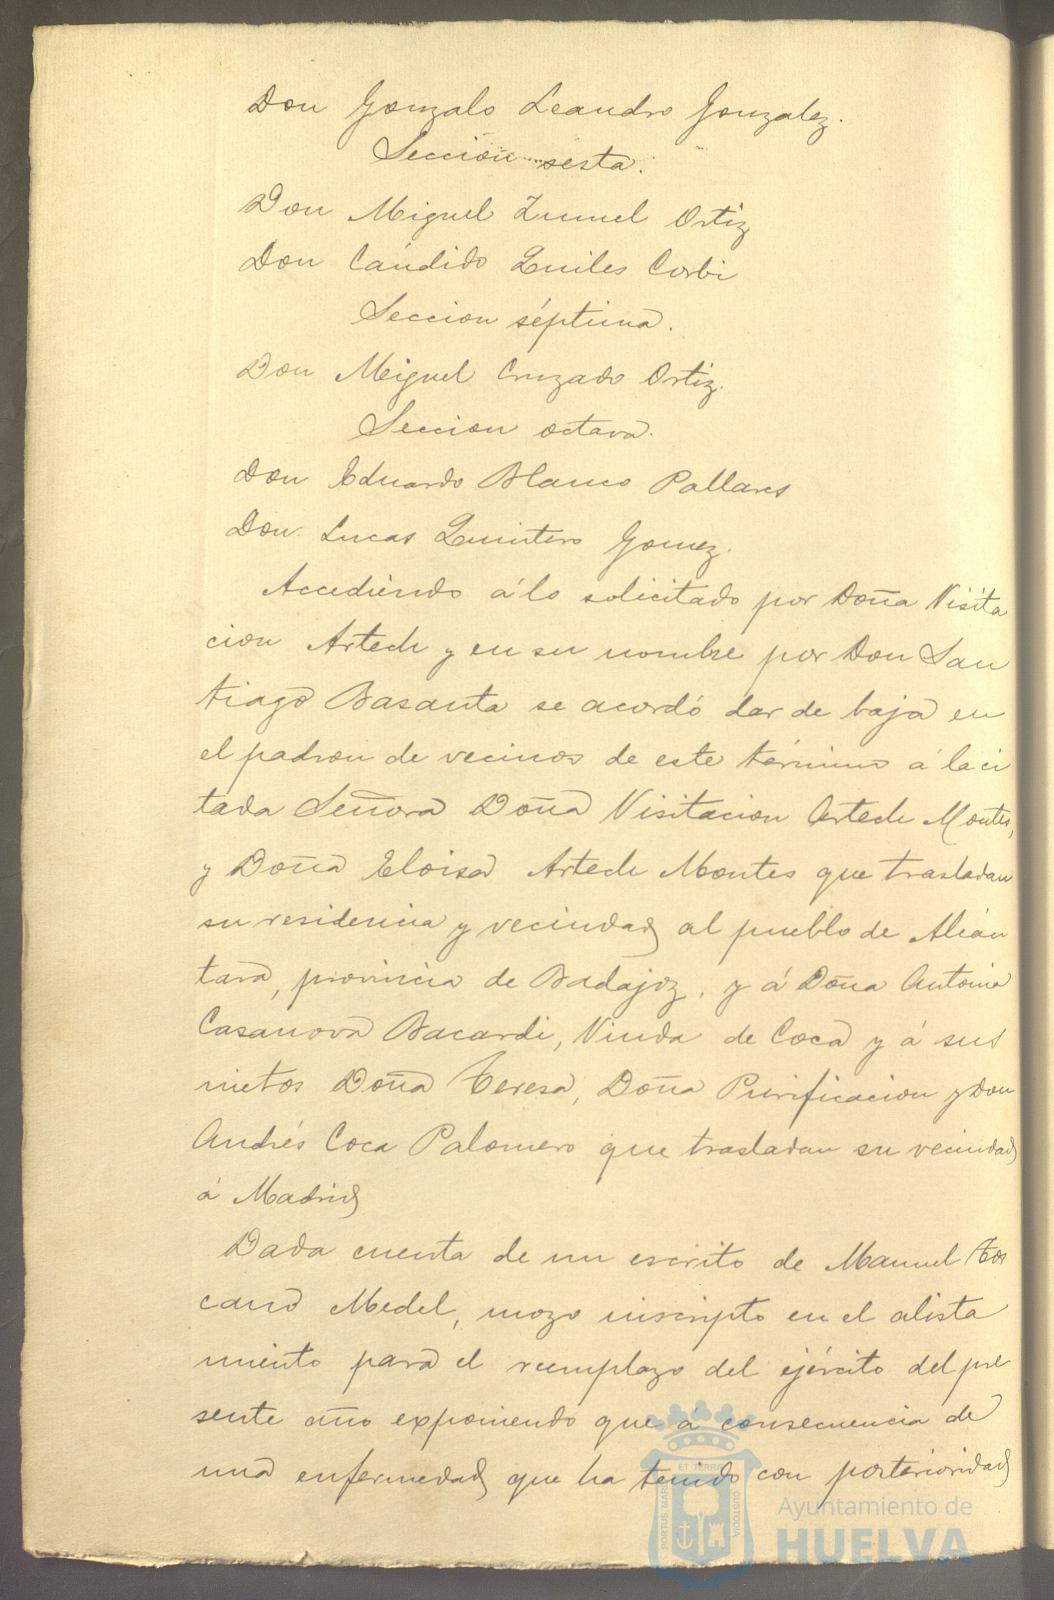 Don Gonzalo Leandro Gonzalez.
Sección sesta.
Don Miguel Zunnel Ortiz
Don Cándido Quiles Corbi
Seccion séptima.
Don Miguel Cruzado Ortiz.
Seccion octava.
Don Eduardo Blanco Pallares
Don Lucas Quintero Gomez.
Accediendo á lo solicitado por Doña Visita
cion Artech y en su nombre por Don San
tiago Basanta se acordó dar de baja en
el padron de vecinos de este término á la ci
tada Señora Doña Visitacion Artech Montes,
y Doña Eloisa Artech Montes que trasladan
su residencia y vecindad al pueblo de Alcán
tara, provincia de Badajoz, y á Doña Antonia
Casanova Bacardi, Viuda de Coca y á sus
nietos Doña Teresa, Doña Purificacion y Don
Andrés Coca Palomero que trasladan su vecindad
á Madrid
Dada cuenta de un escrito de Manuel Tos
cano Medel, mozo inscripto en el alista
miento para el reemplazo del ejército del pre
sente año exponiendo que á consecuencia de
una enfermedad que ha tenido con posterioridad
PORTUS MARIS ET TERRAE CUSTODIA
Ayuntamiento de
HUELVA